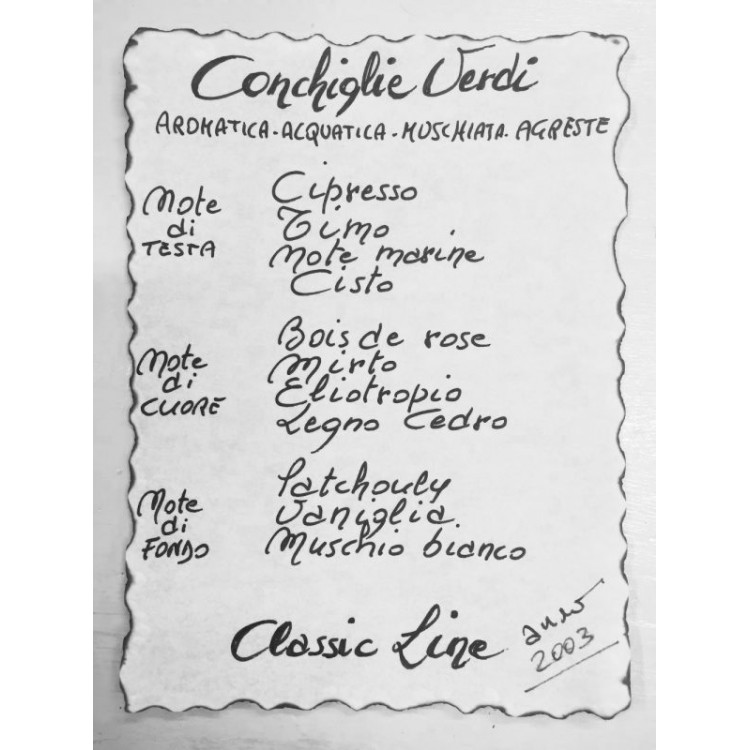 Conchiglie Verdi
AROMATICA - ACQUATICA - MUSCHIATA. AGRESTE
Note di TESTA
Cipresso
Timo
Note marine
Cisto
Note di CUORE
Bois de rose
Mirto
Eliotropio
Legno Cedro
Note di FONDO
Patchouly
Vaniglia.
Muschio bianco
Classic Line
anno 2003